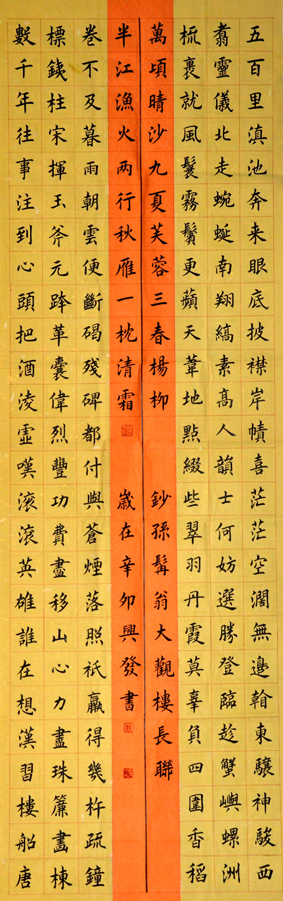 五百里滇池奔来眼底披襟岸幘喜茫茫空濶無邊翰東驤神駿西
翥靈儀北走蜿蜒南翔縞素高人韻士何妨選勝登臨趁蟹嶼螺洲
梳裹就風鬟霧鬢更蘋天葦地點綴些翠羽丹霞莫辜負四圍香稻
萬頃晴沙九夏芙蓉三春楊柳
鈔孫髯翁大觀樓長聯
數千年往事注到心頭把酒淩虛嘆滾滾英雄誰在想漢習樓船唐
標銕柱宋揮玉斧元跨革囊偉烈豐功費盡移山心力盡珠簾畫棟
卷不及暮雨朝雲便斷碣殘碑都付與蒼煙落照祇贏得幾杵疏鐘
半江漁火两行秋雁一枕清霜
歲在辛卯興發書